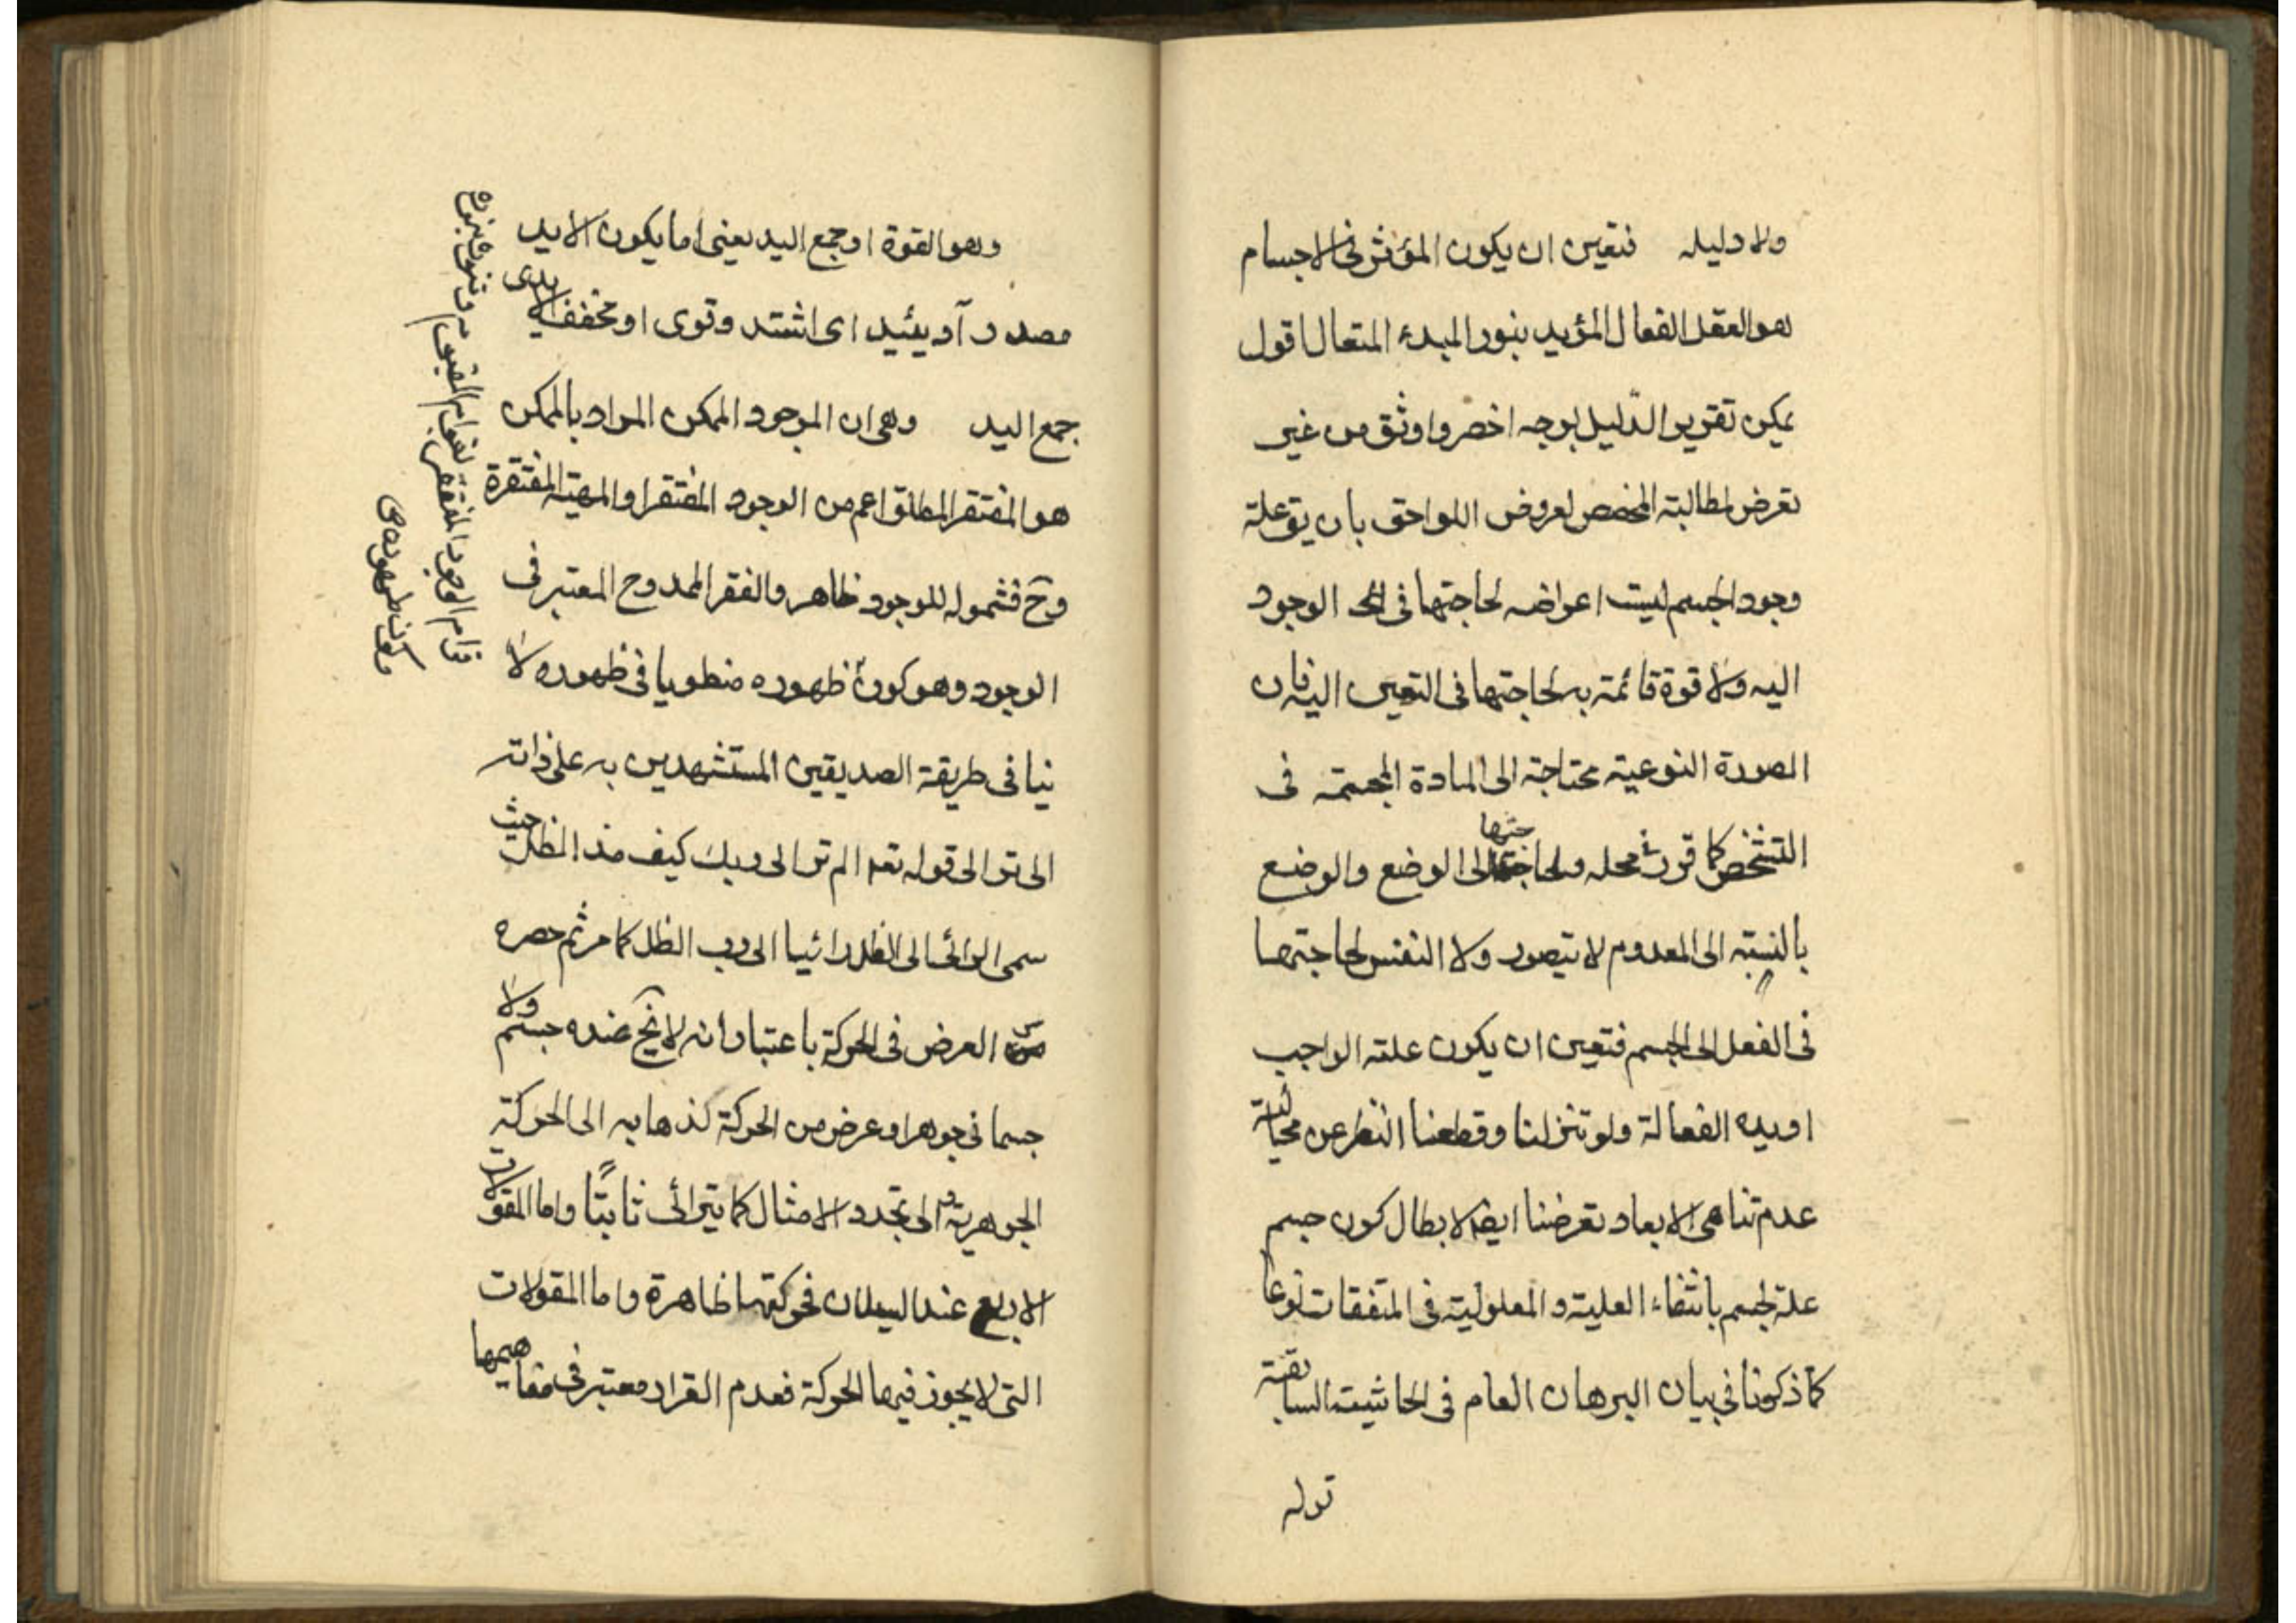 ولا دليله فتعين ان يكون المؤثر فى الاجسام
هو العقل الفعال المؤيد بنور المبدء المتعال اقول
يمكن تقرير الدّليل بوجه اخصر واوثق من غير
تعرض لمطالبة المخصص لعروض اللواحق بان يق علة
وجود الجسم ليست اعراضه لحاجتها فى الوجود
اليه ولا قوة قائمة به لحاجتها فى التعين اليه فان
الصورة النوعية محتاجة الى المادة المجسمة فى
التشخص كما قرر فى محله ولحاجتها الى الوضع والوضع
بالنسبة الى المعدوم لا يتصور ولا النفس لحاجتها
فى الفعل الى الجسم فتعين ان يكون علته الواجب
او يده الفعالة ولو تنزلنا وقطعنا النظر عن
عدم تناهى الابعاد تعرضنا ايضا لابطال كون جسم
علة لجسم بانتفاء العلية والمعلولية فى المتفقات نوعا
كما ذكرنا فى بيان البرهان العام فى الحاشية السابقة
قوله
وهو القوة او جمع اليد يعنى اما يكون الايد
مصدر آد يئيد اى اشتد وقوى او مخفف الايدى
جمع اليد وهى ان الموجود الممكن المراد بالممكن
هو المفتقر المطلق اعم من الوجود المفتقر او المهية المفتقرة
وح فشموله للوجود ظاهر والفقر الممدوح المعتبر فى
الوجود وهو كون ظهوره منطويا فى ظهوره لا
ينافى طريقة الصديقين المستشهدين به على ذاته
الى تر الى قوله تعه الم تر الى ربك كيف مد الظل حيث
سمى الرائى الى الظل رائيا الى رب الظل كما مر ثم حصره
العرض فى الحركة باعتبار انه لا يخ عنده جسم ولا
جسمانى جوهر او عرض من الحركة كذهابه الى الحركة
الجوهرية والى تجدد الامثال كما يترائى ثابتًا واما المقولات
الاربع عند السيلان فحركتها ظاهرة واما المقولات
التى لا يجوز فيها الحركة فعدم القرار معتبر فى مفاهيمها